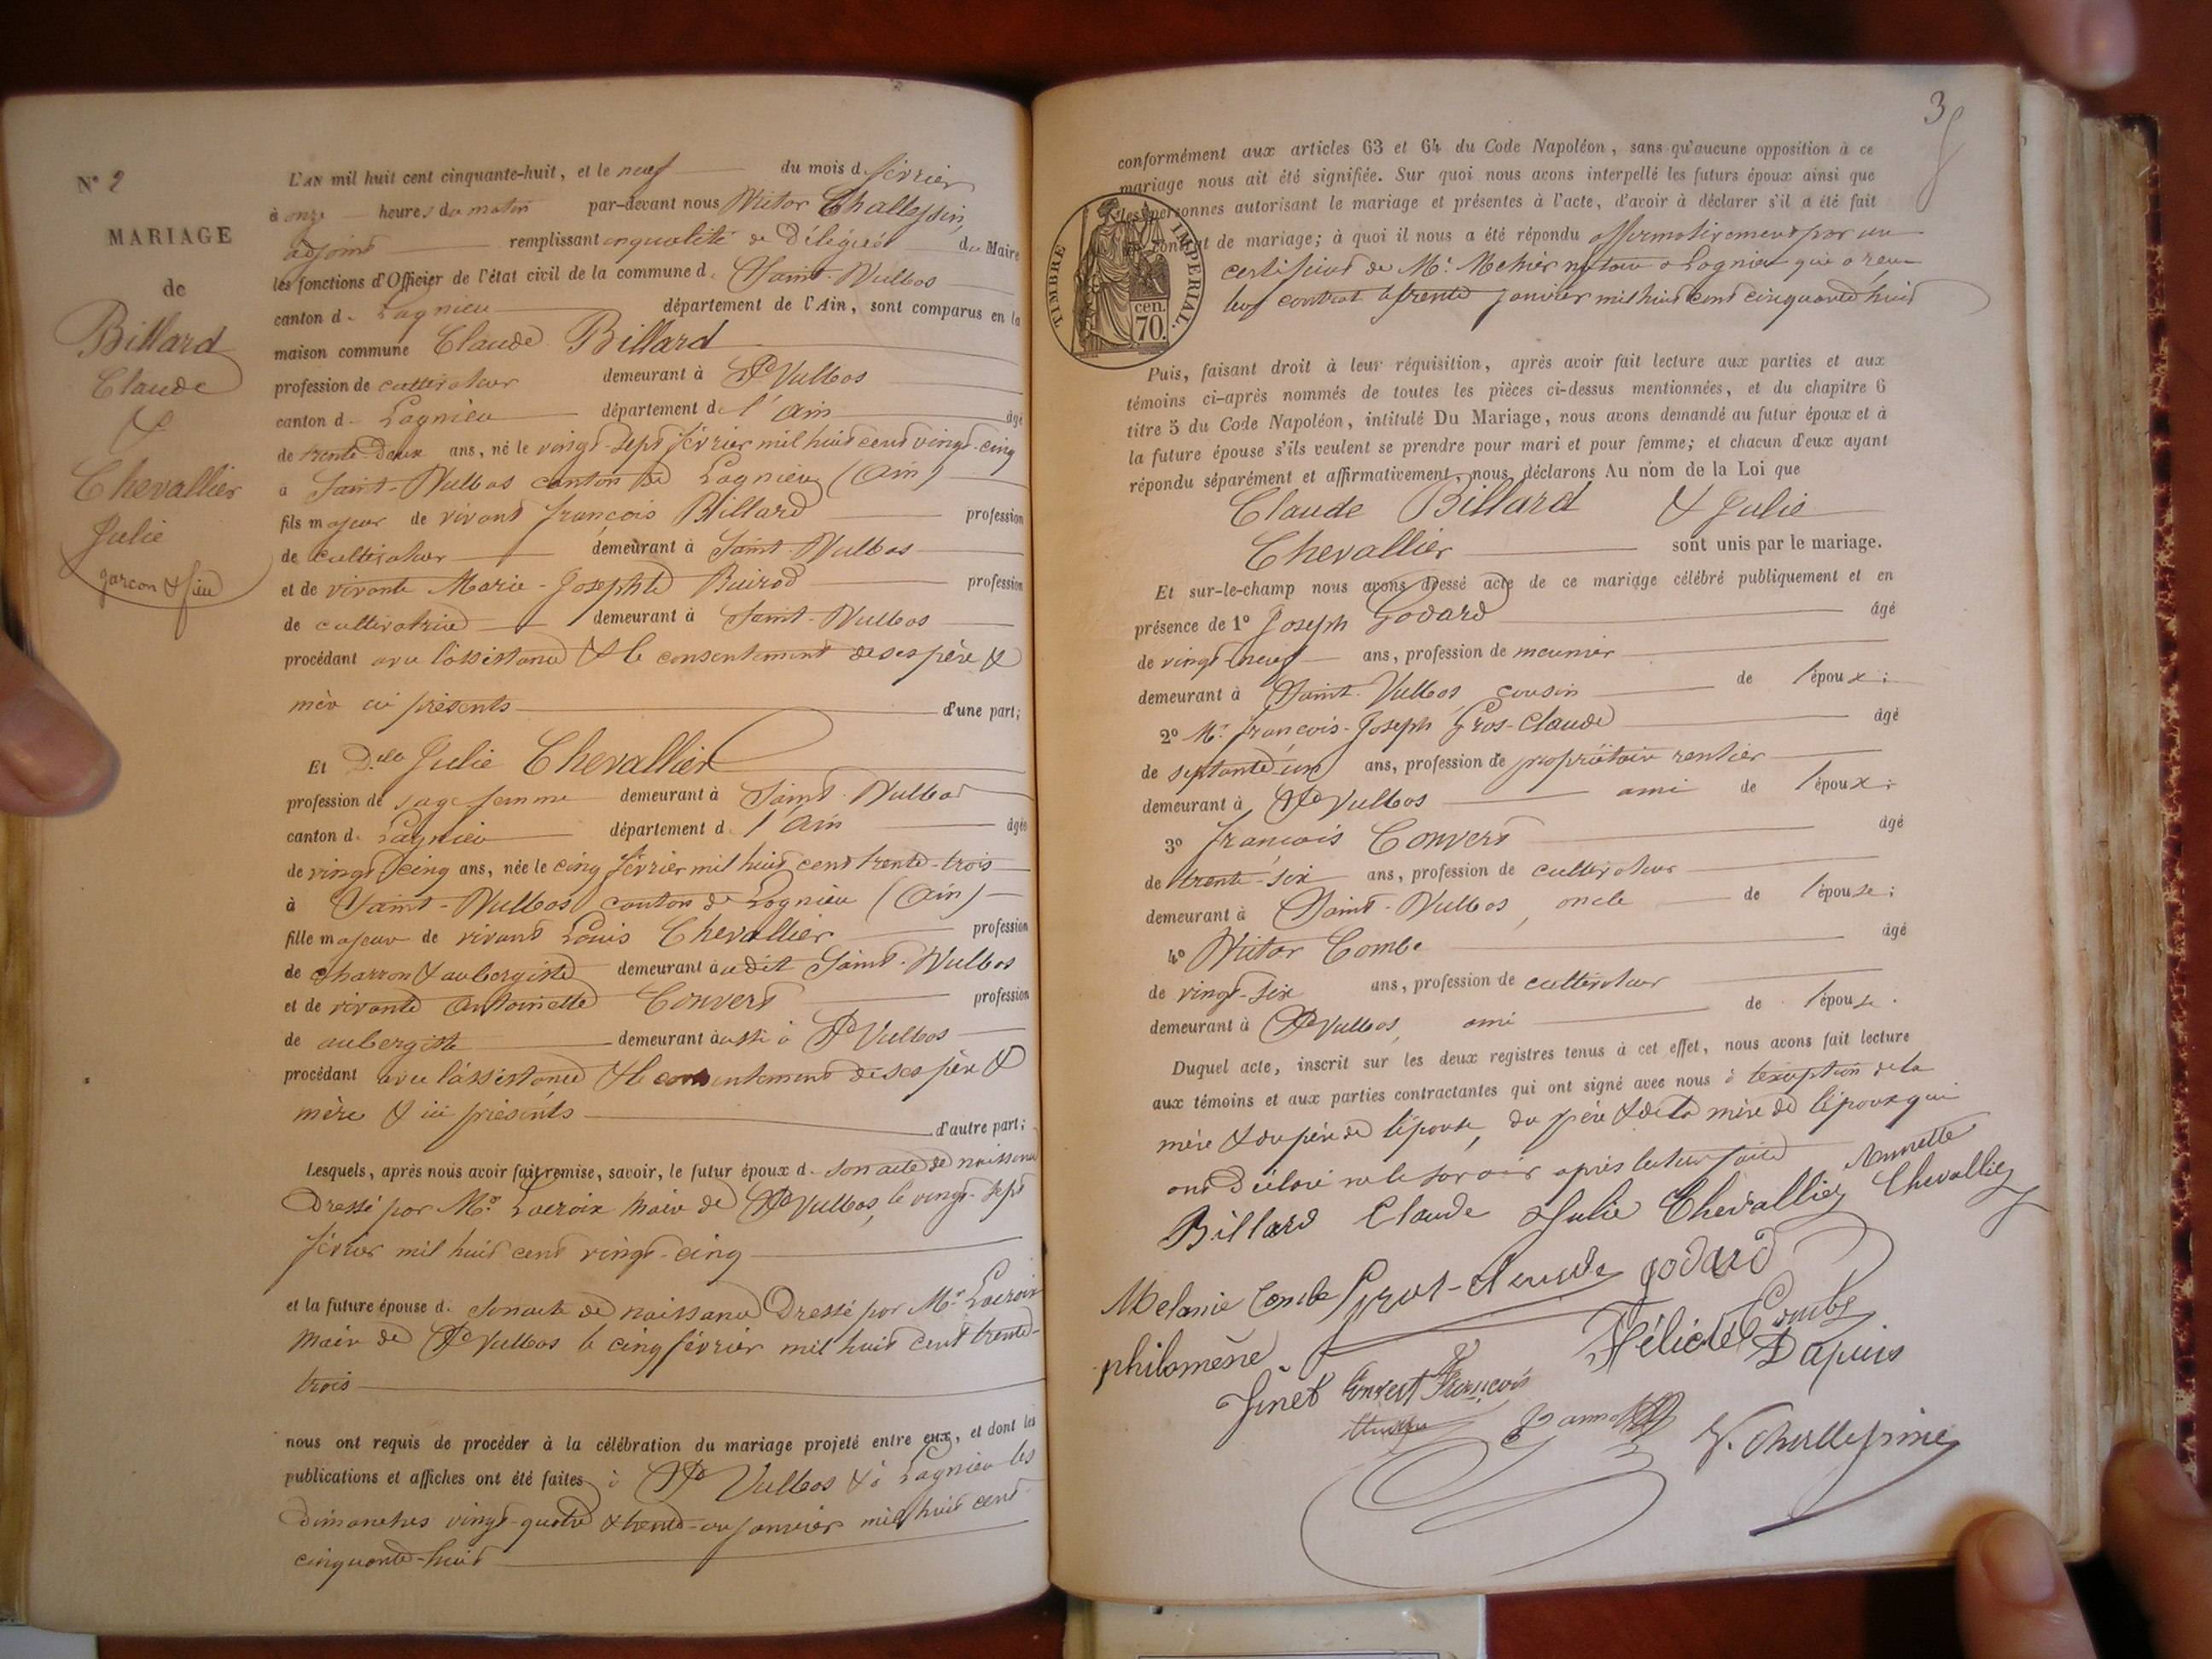 N° 2
MARIAGE
de
Billard
Claude
&
Chevallier
Julie
garçon & fille
L'AN mil huit cent cinquante-huit, et le neuf du mois d. février
à onze heures du matin par-devant nous Victor Challessin,
adjoint remplissant en qualité de Délégué du Maire
les fonctions d'Officier de l'état civil de la commune d. Saint-Vulbas
canton d. Lagnieu département de l'Ain, sont comparus en la
maison commune Claude Billard
profession de cultivateur demeurant à St Vulbas
canton d. Lagnieu département de l'Ain âgé
de trente-deux ans, né le vingt-sept février mil huit cent vingt-cinq
à Saint-Vulbas canton de Lagnieu (Ain)
fils majeur de vivant françois Billard profession
de cultivateur demeurant à Saint-Vulbas
et de vivante Marie-Josephte profession
de cultivatrice demeurant à Saint-Vulbas
procédant avec l'assistance & le consentement de ses père &
mère ici présents d'une part;
Et D.lle Julie Chevallier
profession de sage femme demeurant à Saint-Vulbas
canton d. Lagnieu département d. l'Ain âgée
de vingt-cinq ans, née le cinq février mil huit cent trente-trois
à Saint-Vulbas canton de Lagnieu (Ain)
fille majeure de vivant Louis Chevallier profession
de charron & aubergiste demeurant audit Saint-Vulbas
et de vivante Antoinette Convert profession
de aubergiste demeurant aussi à St Vulbas
procédant avec l'assistance & le consentement de ses père &
mère & ici présents d'autre part;
Lesquels, après nous avoir fait remise, savoir, le futur époux d. son acte de naissance
Dressé par Mr. Lacroix Maire de St Vulbas, le vingt-sept
février mil huit cent vingt-cinq
et la future épouse d. son acte de naissance Dressé par Mr. Lacroix
Maire de St Vulbas le cinq février mil huit cent trente-
trois
nous ont requis de procéder à la célébration du mariage projeté entre eux, et dont les
publications et affiches ont été faites à St Vulbas & à Lagnieu les
dimanches vingt-quatre & trente-un janvier mil huit cent
cinquante-huit
3
conformément aux articles 63 et 64 du Code Napoléon, sans qu'aucune opposition à ce
mariage nous ait été signifiée. Sur quoi nous avons interpellé les futurs époux ainsi que
les personnes autorisant le mariage et présentes à l'acte, d'avoir à déclarer s'il a été fait
un contrat de mariage; à quoi il nous a été répondu affirmativement par un
certificat de Mr. notaire à Lagnieu qui a reçu
leur contrat le trente janvier mil huit cent cinquante huit
TIMBRE IMPERIAL.
cen.
70.
Puis, faisant droit à leur réquisition, après avoir fait lecture aux parties et aux
témoins ci-après nommés de toutes les pièces ci-dessus mentionnées, et du chapitre 6
titre 5 du Code Napoléon, intitulé Du Mariage, nous avons demandé au futur époux et à
la future épouse s'ils veulent se prendre pour mari et pour femme; et chacun d'eux ayant
répondu séparément et affirmativement, nous déclarons Au nom de la Loi que
Claude Billard & Julie
Chevallier sont unis par le mariage.
Et sur-le-champ nous avons dressé acte de ce mariage célébré publiquement et en
présence de 1° Joseph Godard âgé
de vingt-neuf ans, profession de meunier
demeurant à Saint-Vulbas, cousin de l'époux;
2° Mr. françois-Joseph Gros-Claude âgé
de septante-un ans, profession de propriétaire rentier
demeurant à St Vulbas ami de l'époux;
3° françois Convert âgé
de trente-six ans, profession de cultivateur
demeurant à Saint-Vulbas, oncle de l'épouse;
4° Victor Combe âgé
de vingt-six ans, profession de cultivateur
demeurant à St Vulbas, ami de l'épouse.
Duquel acte, inscrit sur les deux registres tenus à cet effet, nous avons fait lecture
aux témoins et aux parties contractantes qui ont signé avec nous à l'exception de la
mère & du père de l'épouse, du père & de la mère de l'époux qui
ont déclaré ne le savoir après lecture faite
Billard Claude Julie Chevallier Annette Chevallier
Melanie Combe Gros-claude godard
philomène Félicité Combe
Dapuis
Jinet Convert François
V. Challessin